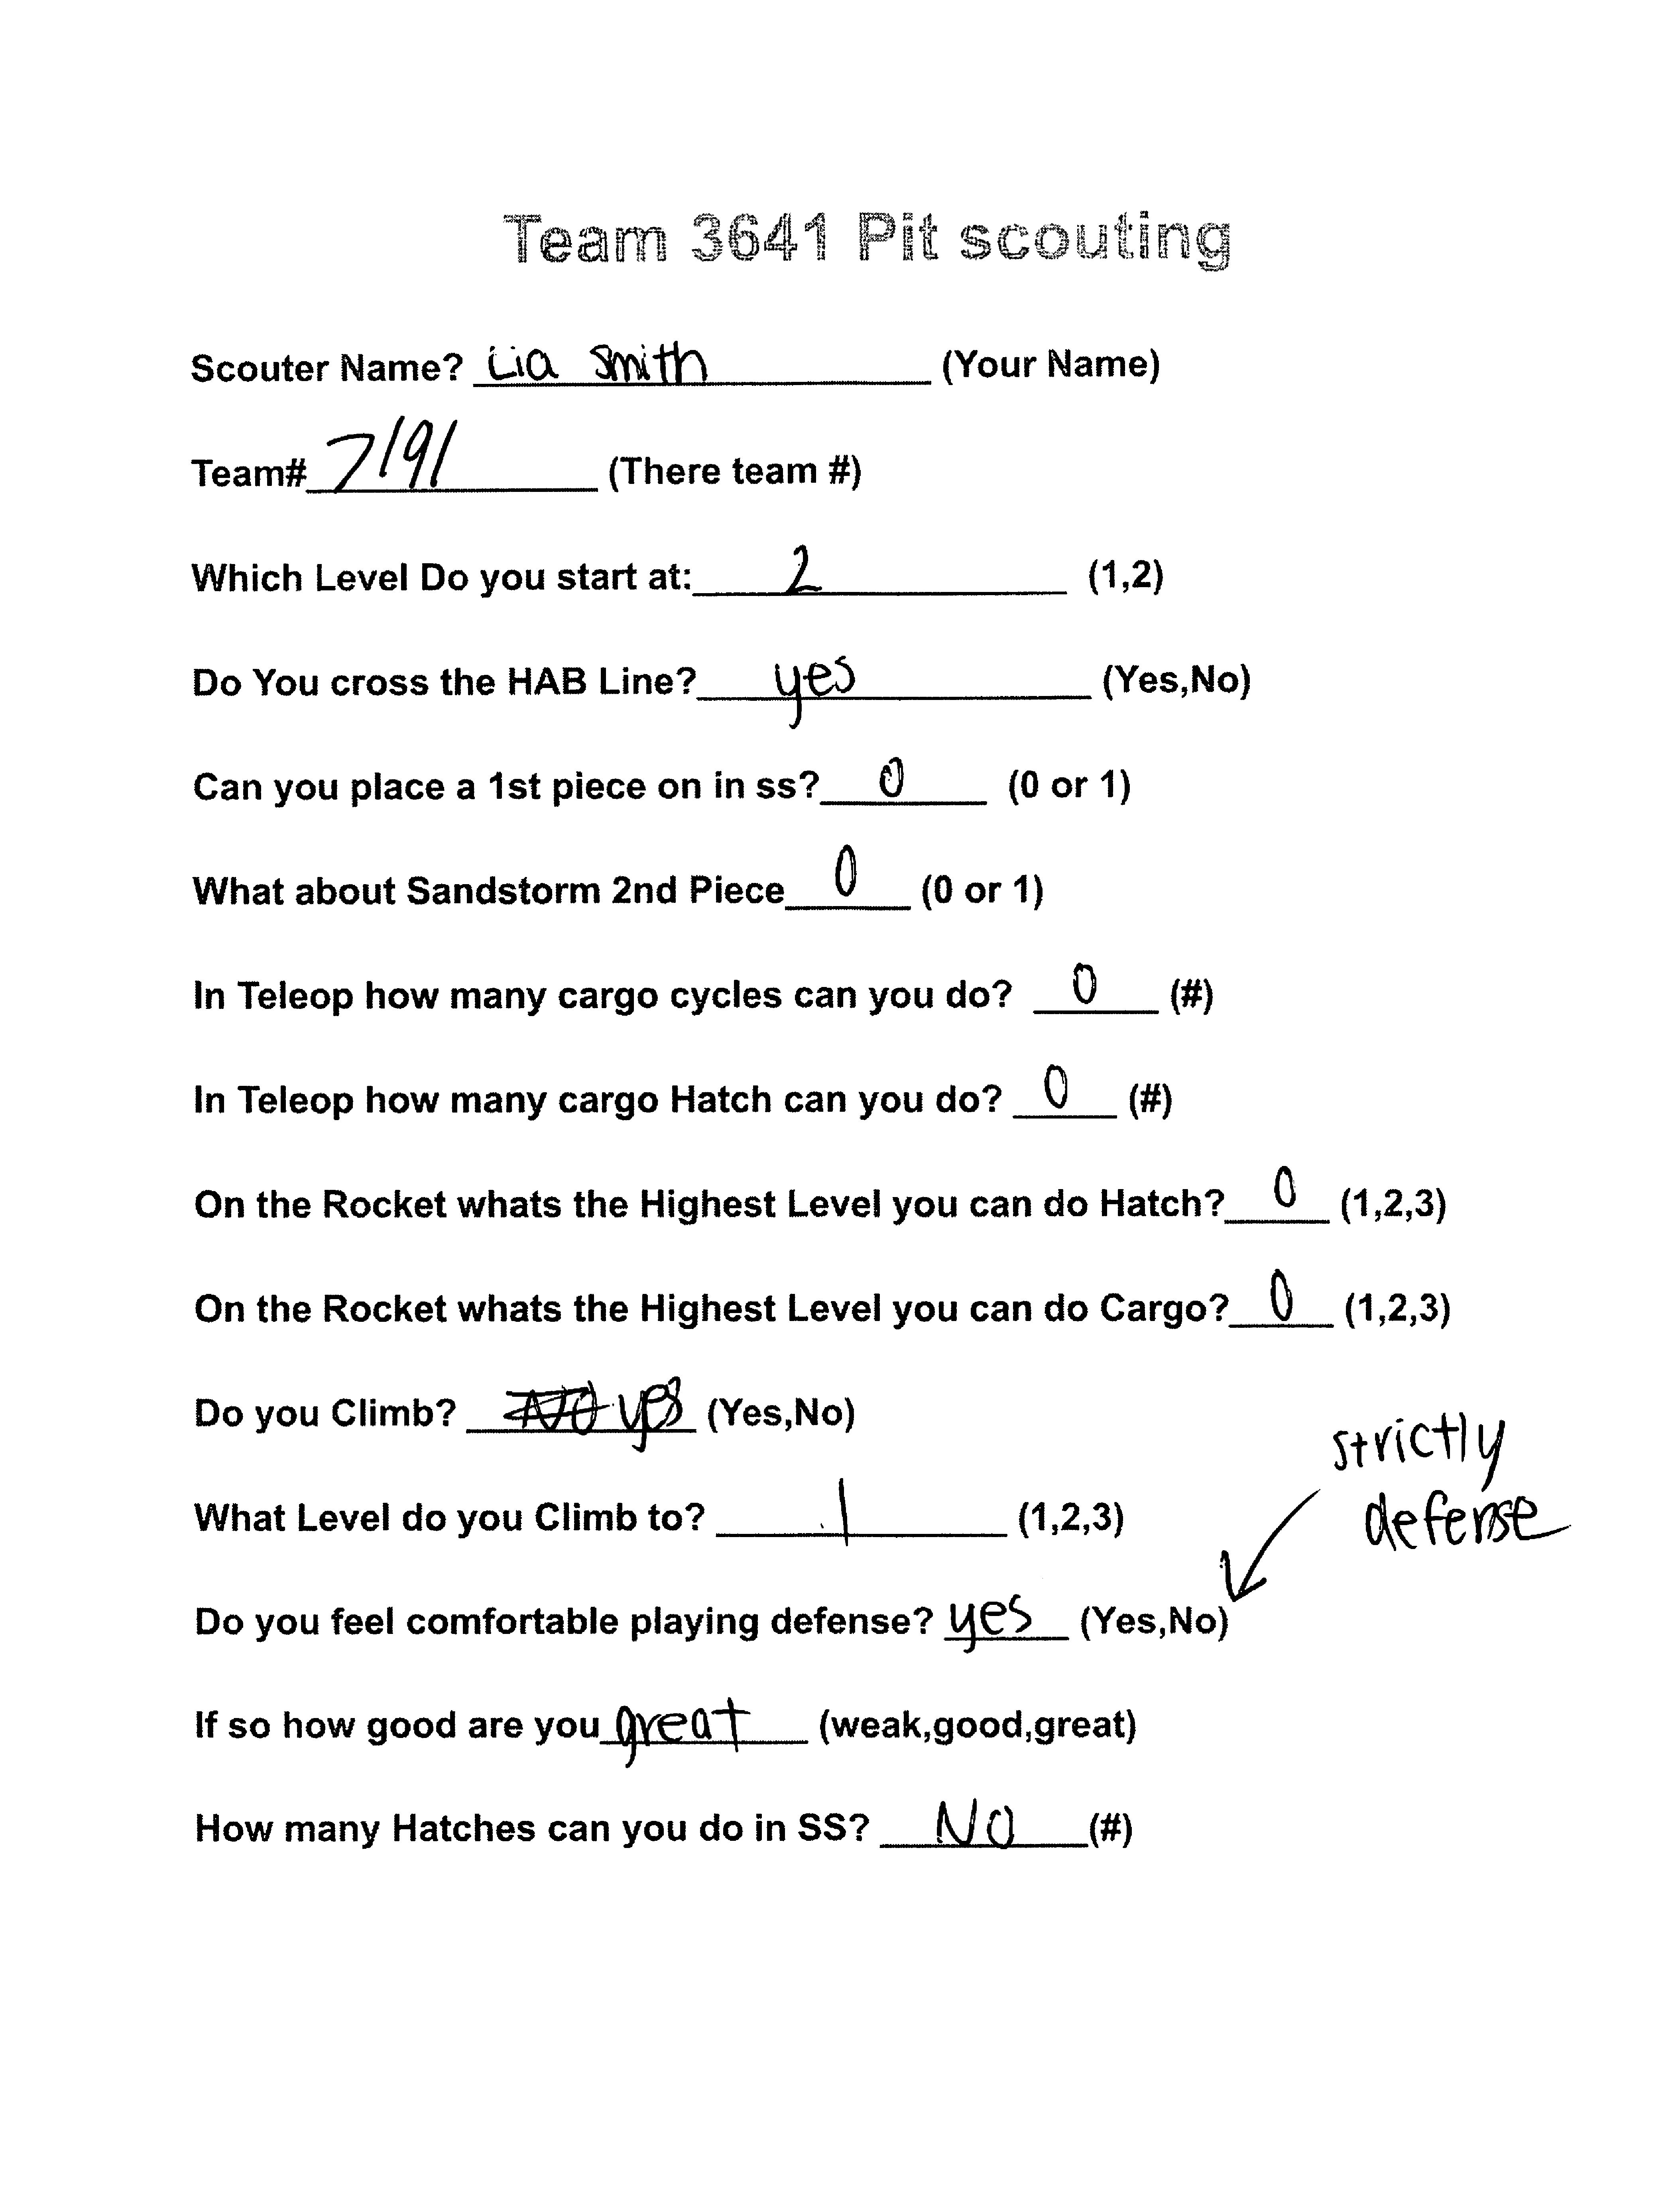 Team 3641 Pit scouting
Scouter Name? Lia Smith (Your Name)
Team# 7191 (There team #)
Which Level Do you start at: 2 (1,2)
Do You cross the HAB Line? yes (Yes,No)
Can you place a 1st piece on in ss? 0 (0 or 1)
What about Sandstorm 2nd Piece 0 (0 or 1)
In Teleop how many cargo cycles can you do? 0 (#)
In Teleop how many cargo Hatch can you do? 0 (#)
On the Rocket whats the Highest Level you can do Hatch? 0 (1,2,3)
On the Rocket whats the Highest Level you can do Cargo? 0 (1,2,3)
Do you Climb? No yes (Yes,No)
strictly
What Level do you Climb to? 1 (1,2,3)
defense
Do you feel comfortable playing defense? yes (Yes,No)
If so how good are you great (weak,good,great)
How many Hatches can you do in SS? NO (#)